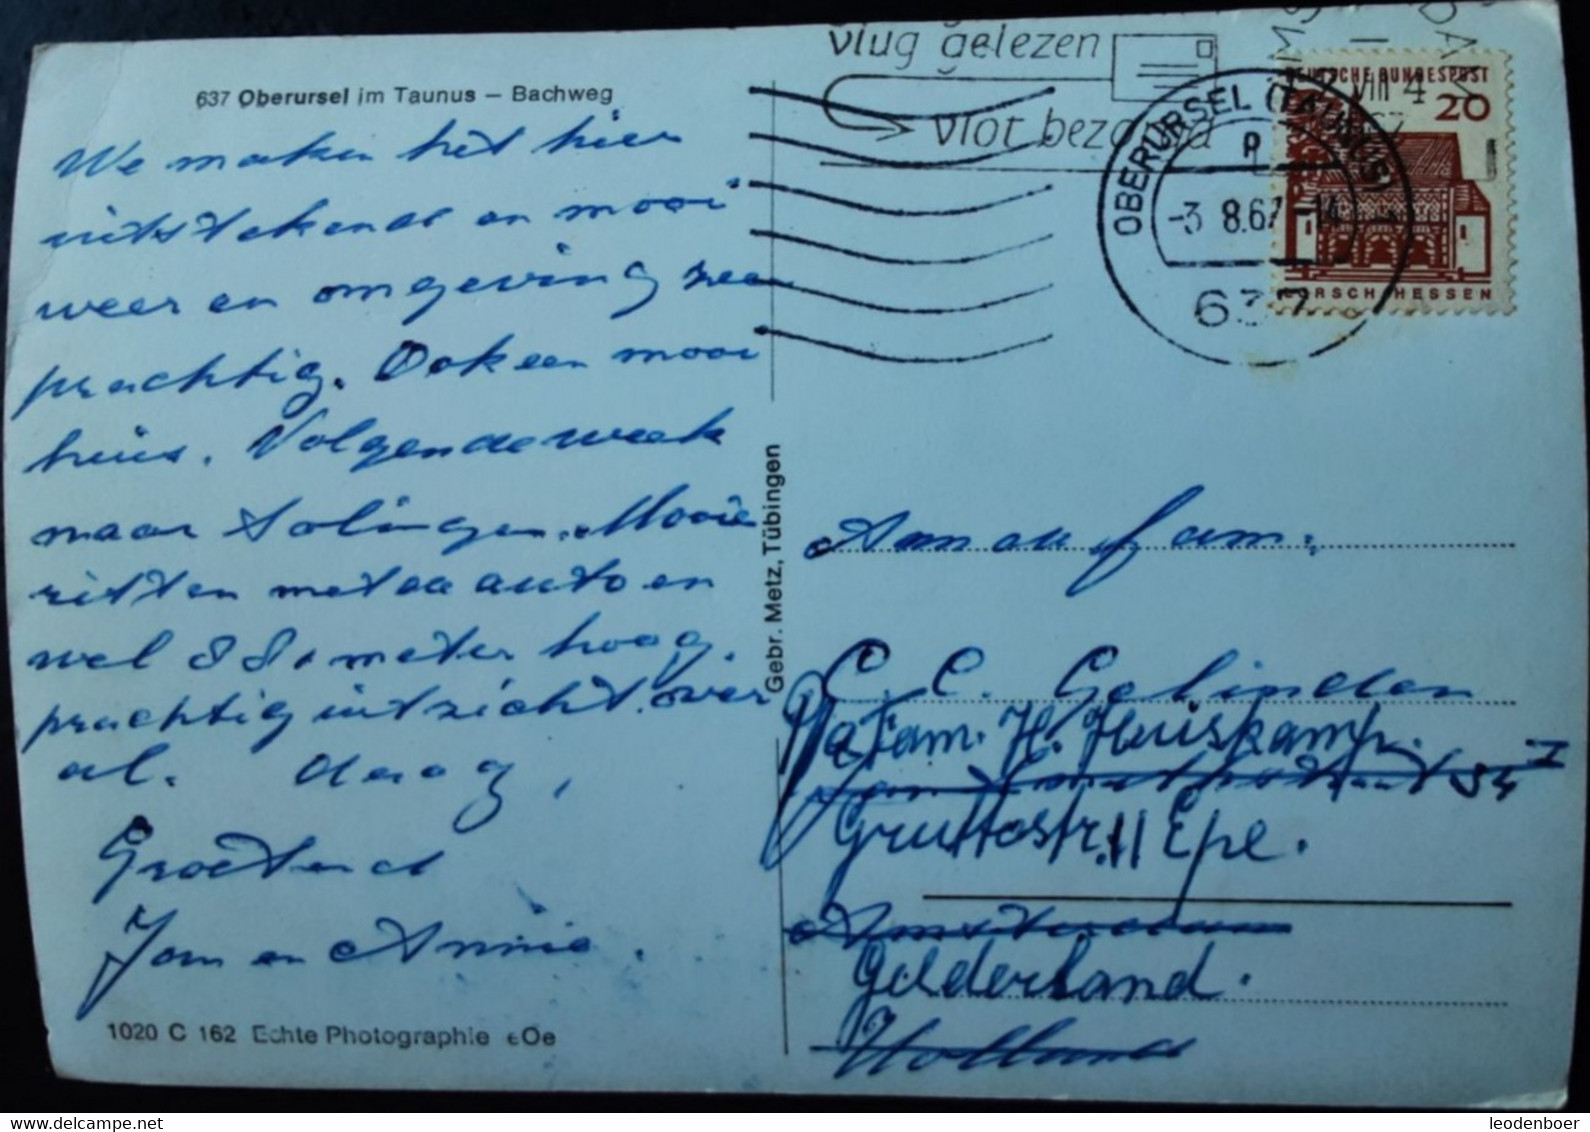 637 Oberursel im Taunus – Bachweg
We maken het hier
uitstekend en mooi
weer en omgeving zeer
prachtig. Ook een mooi
huis. Volgende week
naar Solingen. Mooie
ritten met de auto en
wel 880 meter hoog.
prachtig uitzicht over
al. daag,
Groetend
Jan en Annie.
1020 C 162 Echte Photographie
Gebr. Metz, Tübingen
vlug gelezen
vlot bezorgd
OBERURSEL (TAUNUS) 1
p
-3. 8.67-14
637
DEUTSCHE BUNDESPOST
20
LORSCH HESSEN
VIII 4
Aan de fam.
C. C. Gelinden
Pa Fam. H. Huiskamp.
Gruttostr. 11 Epe.
Amsterdam
Gelderland.
Holland
leodenboer